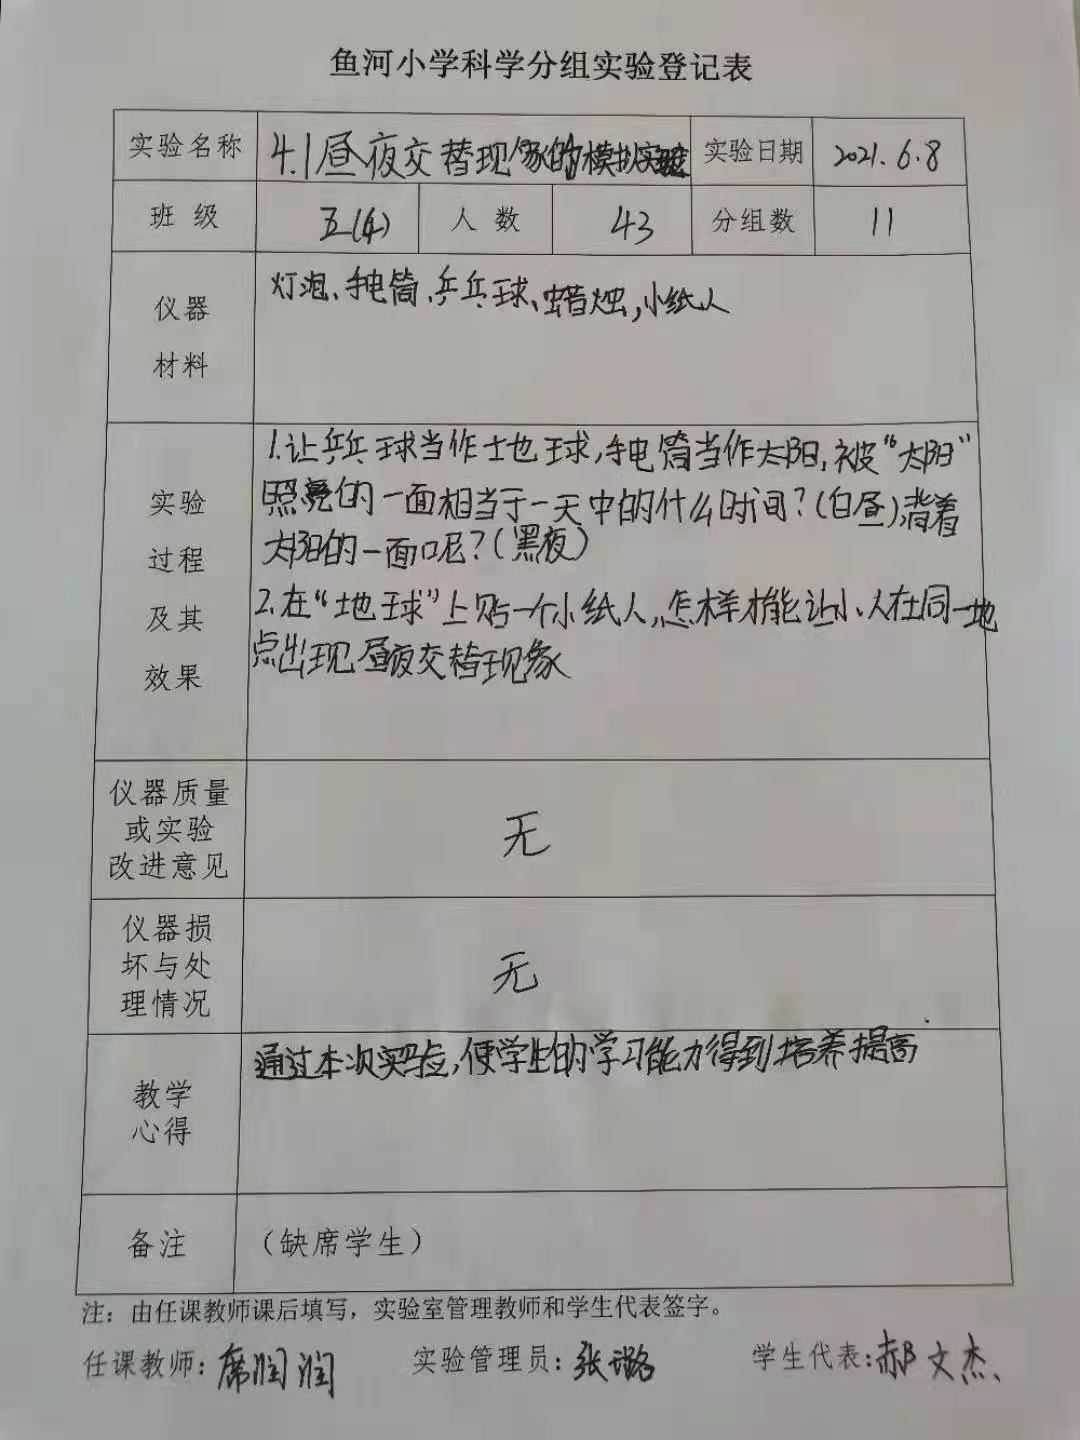 鱼河小学科学分组实验登记表
实验名称 4.1昼夜交替现象的模拟实验 实验日期 2021.6.8
班 级 五(4) 人 数 43 分组数 11
仪器
材料
灯泡、手电筒、乒乓球、蜡烛,小纸人
实验
过程
及其
效果
1.让乒乓球当作地球,手电筒当作太阳,被“太阳”
照亮的一面相当于一天中的什么时间?(白昼)背着
太阳的一面呢?(黑夜)
2.在“地球”上贴一个小纸人,怎样才能让小人在同一地
点出现昼夜交替现象
仪器质量
或实验
改进意见
无
仪器损
坏与处
理情况
无
教学
心得
通过本次实验,使学生的学习能力得到培养提高
备注 (缺席学生)
注:由任课教师课后填写,实验室管理教师和学生代表签字。
任课教师:席润润 实验管理员:张璐 学生代表:郝文杰、